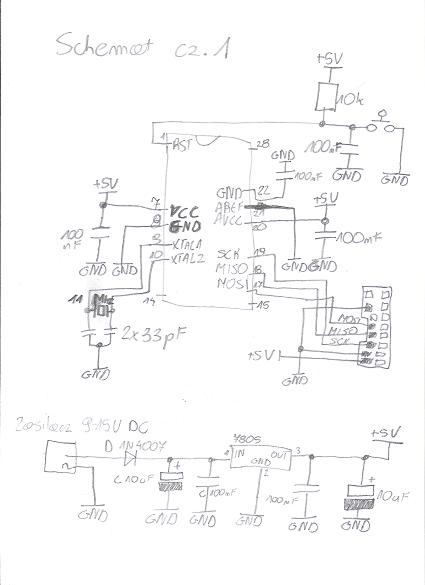 Schemat cz. 1
+5V
10k
1
RST
28
GND
100nF
100nF
GND
GND
+5V
7
VCC
GND
22
+5V
8
GND
AREF
21
AVCC
20
100
nF
9
XTAL1
100nF
GND
GND
10
XTAL2
SCK
19
GND
GND
MISO
18
11
MOSI
17
14
15
2x33pF
MOSI
MISO
SCK
+5V
GND
GND
Zasilacz 9-15V DC
D 1N4007
7805
+5V
1
IN
OUT
3
GND
2
C 10uF
C 100nF
100nF
10uF
GND
GND
GND
GND
GND
GND